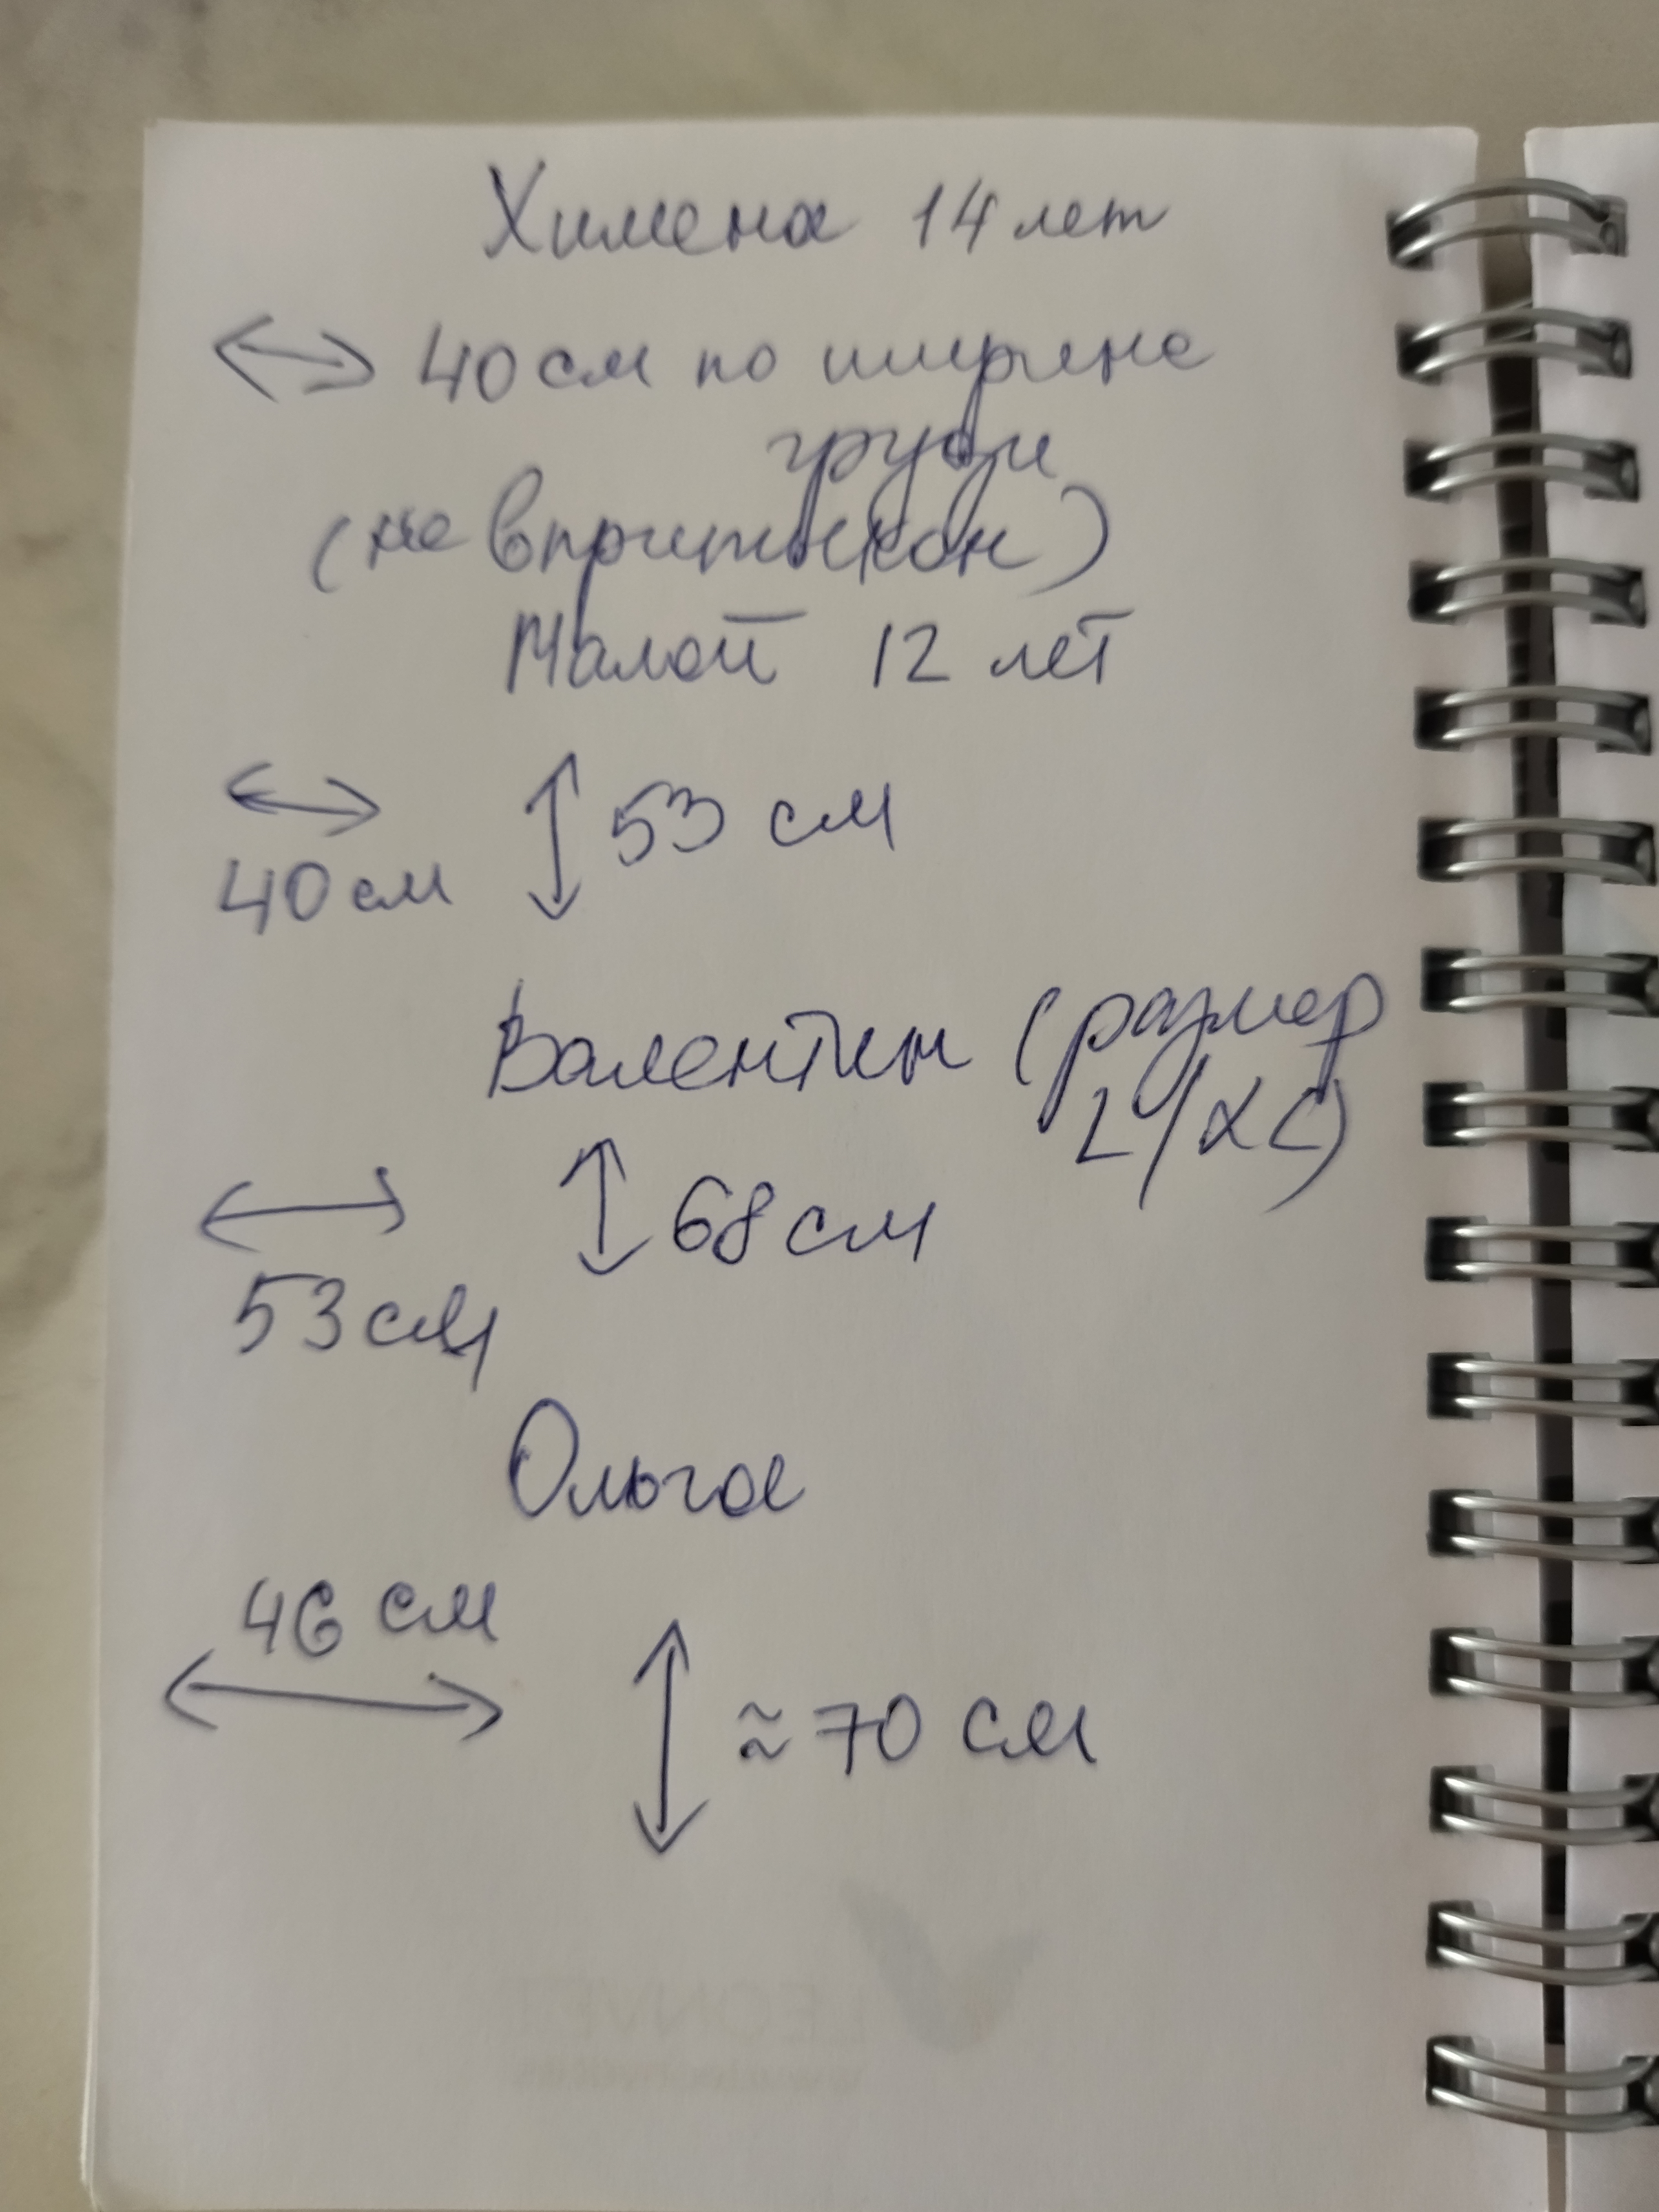 Химена 14 лет
40 см по ширине
груди
(не впритык он)
Малой 12 лет
53 см
40 см
Валентин (размер
L/XL)
68 см
53 см
Ольга
46 см
≈ 70 см